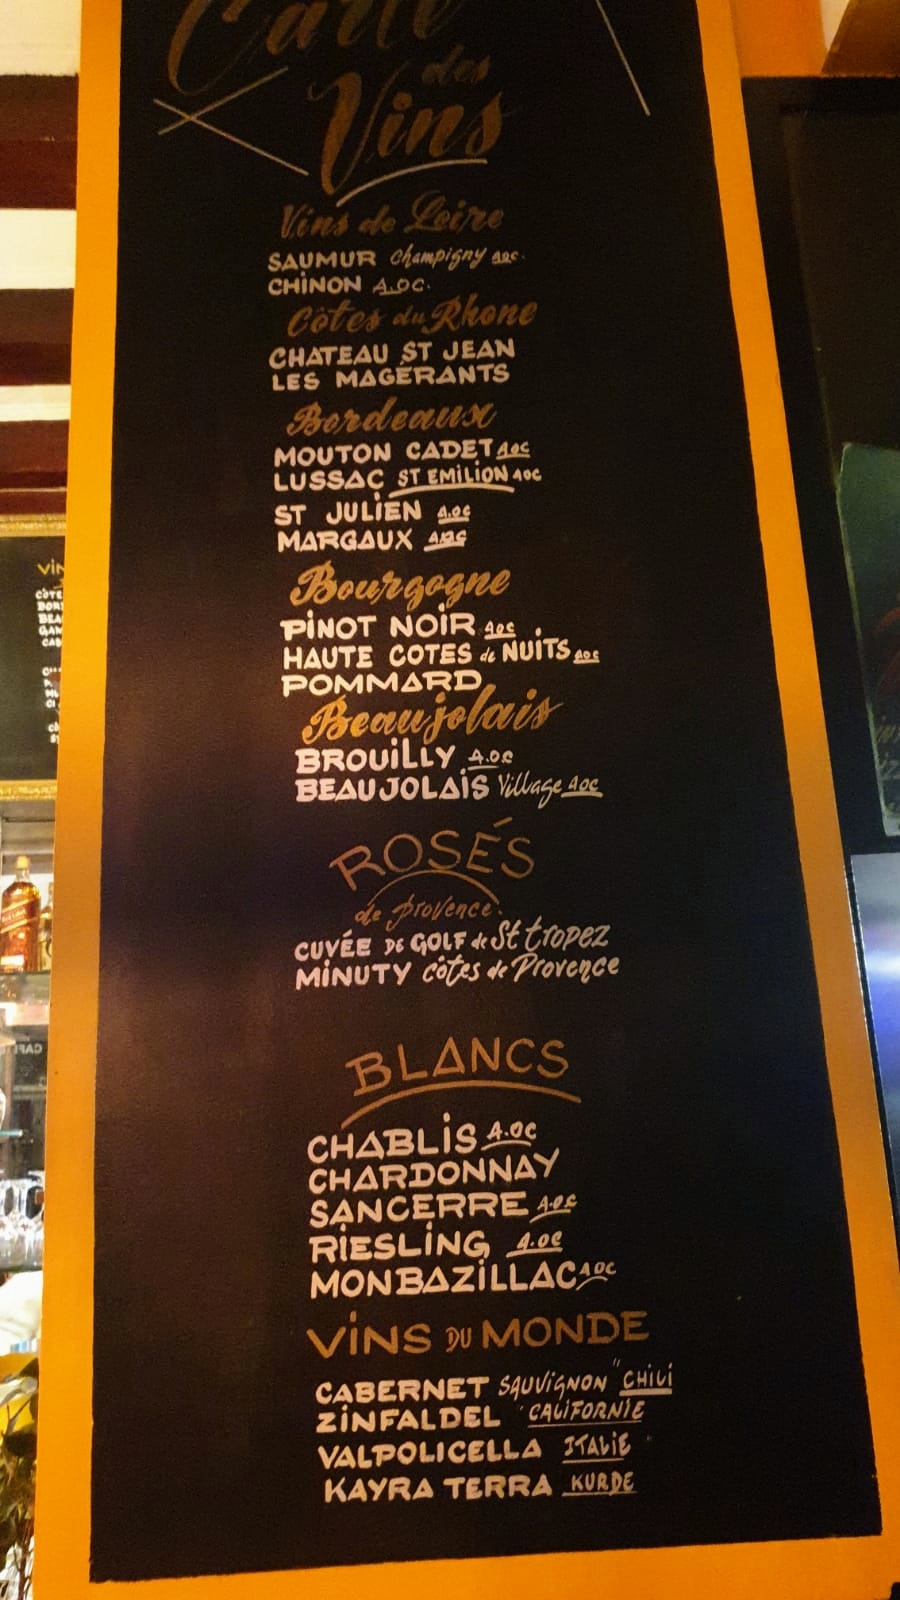 Carte
des
Vins
Vins de Loire
SAUMUR Champigny AOC.
CHINON A.OC.
Côtes du Rhone
CHATEAU ST JEAN
LES MAGÉRANTS
Bordeaux
MOUTON CADET AOC
LUSSAC ST EMILION AOC
ST JULIEN A.OC
MARGAUX AOC
Bourgogne
PINOT NOIR AOC
HAUTE COTES de NUITS AOC
POMMARD
Beaujolais
BROUILLY A.OC
BEAUJOLAIS Village AOC
ROSÉS
de provence.
CUVÉE DE GOLF de St tropez
MINUTY côtes de Provence
BLANCS
CHABLIS A.OC
CHARDONNAY
SANCERRE A.OC
RIESLING A.OC
MONBAZILLAC AOC
VINS DU MONDE
CABERNET SAUVIGNON "CHILI
ZINFALDEL "CALIFORNIE
VALPOLICELLA ITALIE
KAYRA TERRA KURDE
VIN